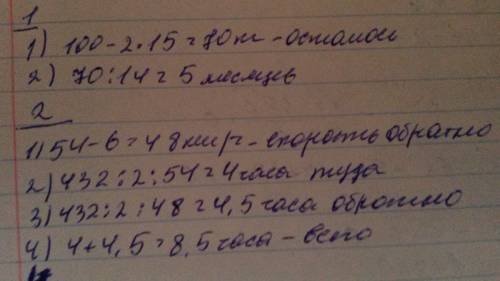 1
1) 100-2·15=70 т - остаток
2) 70:14=5 месяцев
2
1) 54-6=48 км/ч - скорость обратно
2) 432:2:54=4 часа туда
3) 432:2:48=4,5 часа обратно
4) 4+4,5=8,5 часа - всего